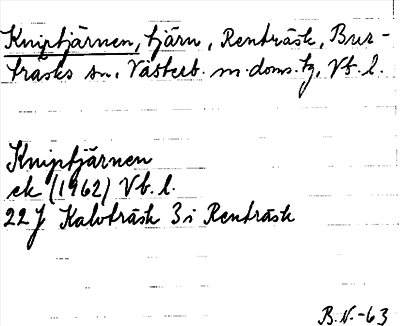 Kniptjärnen, tjärn, Renträsk, Bur-
träsks sn, Västerb. m. doms. tg, Vb. l.
Kniptjärnen
ek (1962) Vb. l.
22 J Kalvträsk 3 i Renträsk
B.N.-63